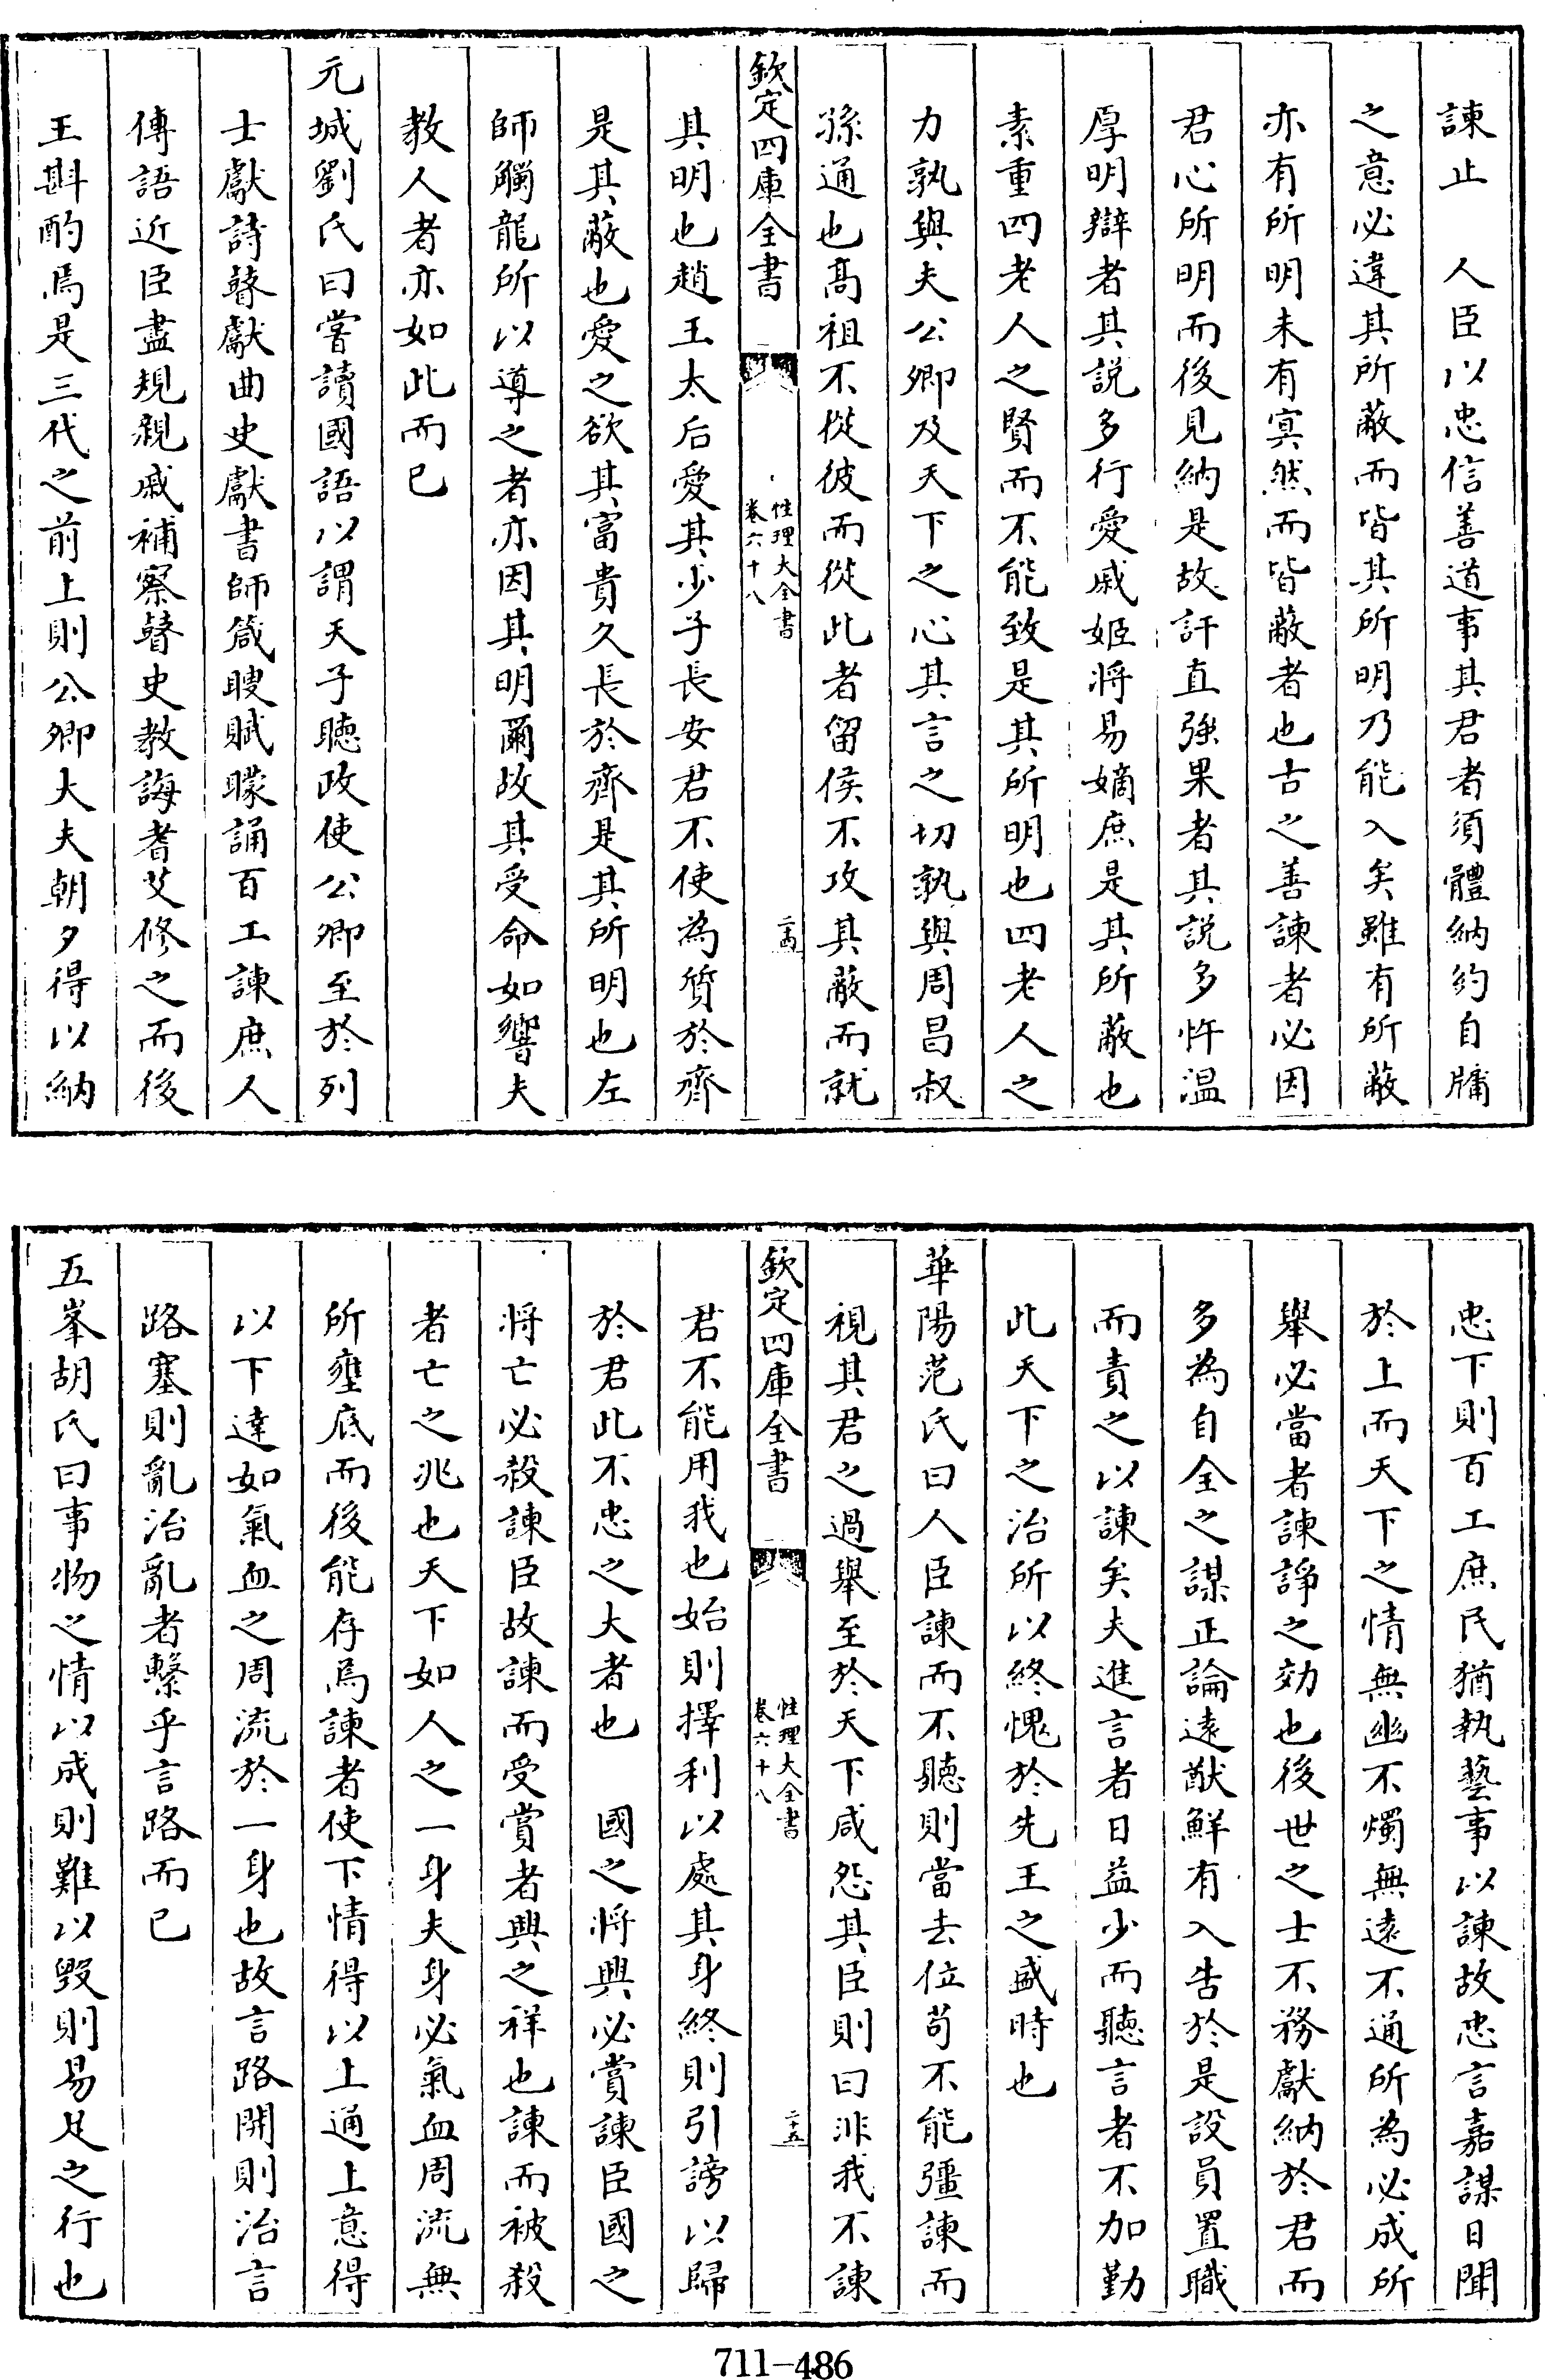 諫止　人臣以忠信善道事其君者須體納約自牖
之意必違其所蔽而皆其所明乃能入矣雖有所蔽
亦有所明未有冥然而皆蔽者也古之善諫者必因
君心所明而後見納是故訐直強果者其説多忤温
厚明辯者其説多行愛戚姬將易嫡庶是其所蔽也
素重四老人之賢而不能致是其所明也四老人之
力孰與夫公卿及天下之心其言之切孰與周昌叔
孫通也高祖不從彼而從此者留侯不攻其蔽而就
欽定四庫全書
性理大全書
卷六十八
二十四
其明也趙王太后愛其少子長安君不使為質於齊
是其蔽也愛之欲其富貴久長於齊是其所明也左
師觸龍所以導之者亦因其明爾故其受命如響夫
教人者亦如此而已
元城劉氏曰嘗讀國語以謂天子聽政使公卿至於列
士獻詩瞽獻曲史獻書師箴瞍賦矇誦百工諫庶人
傳語近臣盡規親戚補察瞽史教誨耆艾修之而後
王斟酌焉是三代之前上則公卿大夫朝夕得以納
忠下則百工庶民猶執藝事以諫故忠言嘉謀日聞
於上而天下之情無幽不燭無遠不通所為必成所
舉必當者諫諍之効也後世之士不務獻納於君而
多為自全之謀正論遠猷鮮有入告於是設員置職
而責之以諫矣夫進言者日益少而聽言者不加勤
此天下之治所以終愧於先王之盛時也
華陽范氏曰人臣諫而不聽則當去位苟不能彊諫而
視其君之過舉至於天下咸怨其臣則曰非我不諫
欽定四庫全書
性理大全書
卷六十八
二十五
君不能用我也始則擇利以處其身終則引謗以歸
於君此不忠之大者也　國之將興必賞諫臣國之
將亡必殺諫臣故諫而受賞者興之祥也諫而被殺
者亡之兆也天下如人之一身夫身必氣血周流無
所壅底而後能存焉諫者使下情得以上通上意得
以下達如氣血之周流於一身也故言路開則治言
路塞則亂治亂者繫乎言路而已
五峯胡氏曰事物之情以成則難以毀則易足之行也
711-486